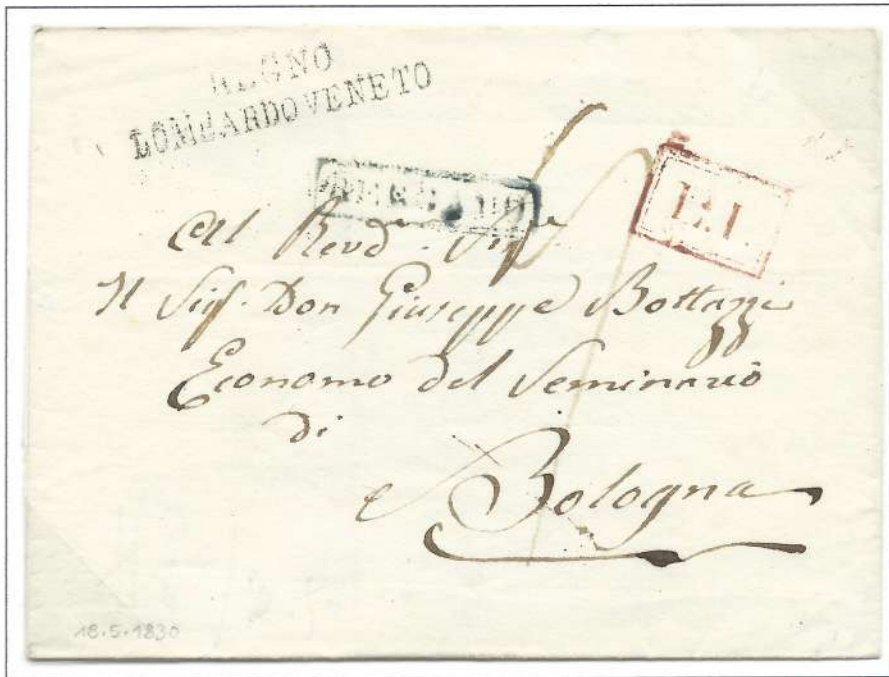 REGNO
LOMBARDOVENETO
L.I.
Al Revd. Sigre
Il Sigr. Don Giuseppe Bottazzi
Economo del Seminario
di
Bologna
18.5.1830